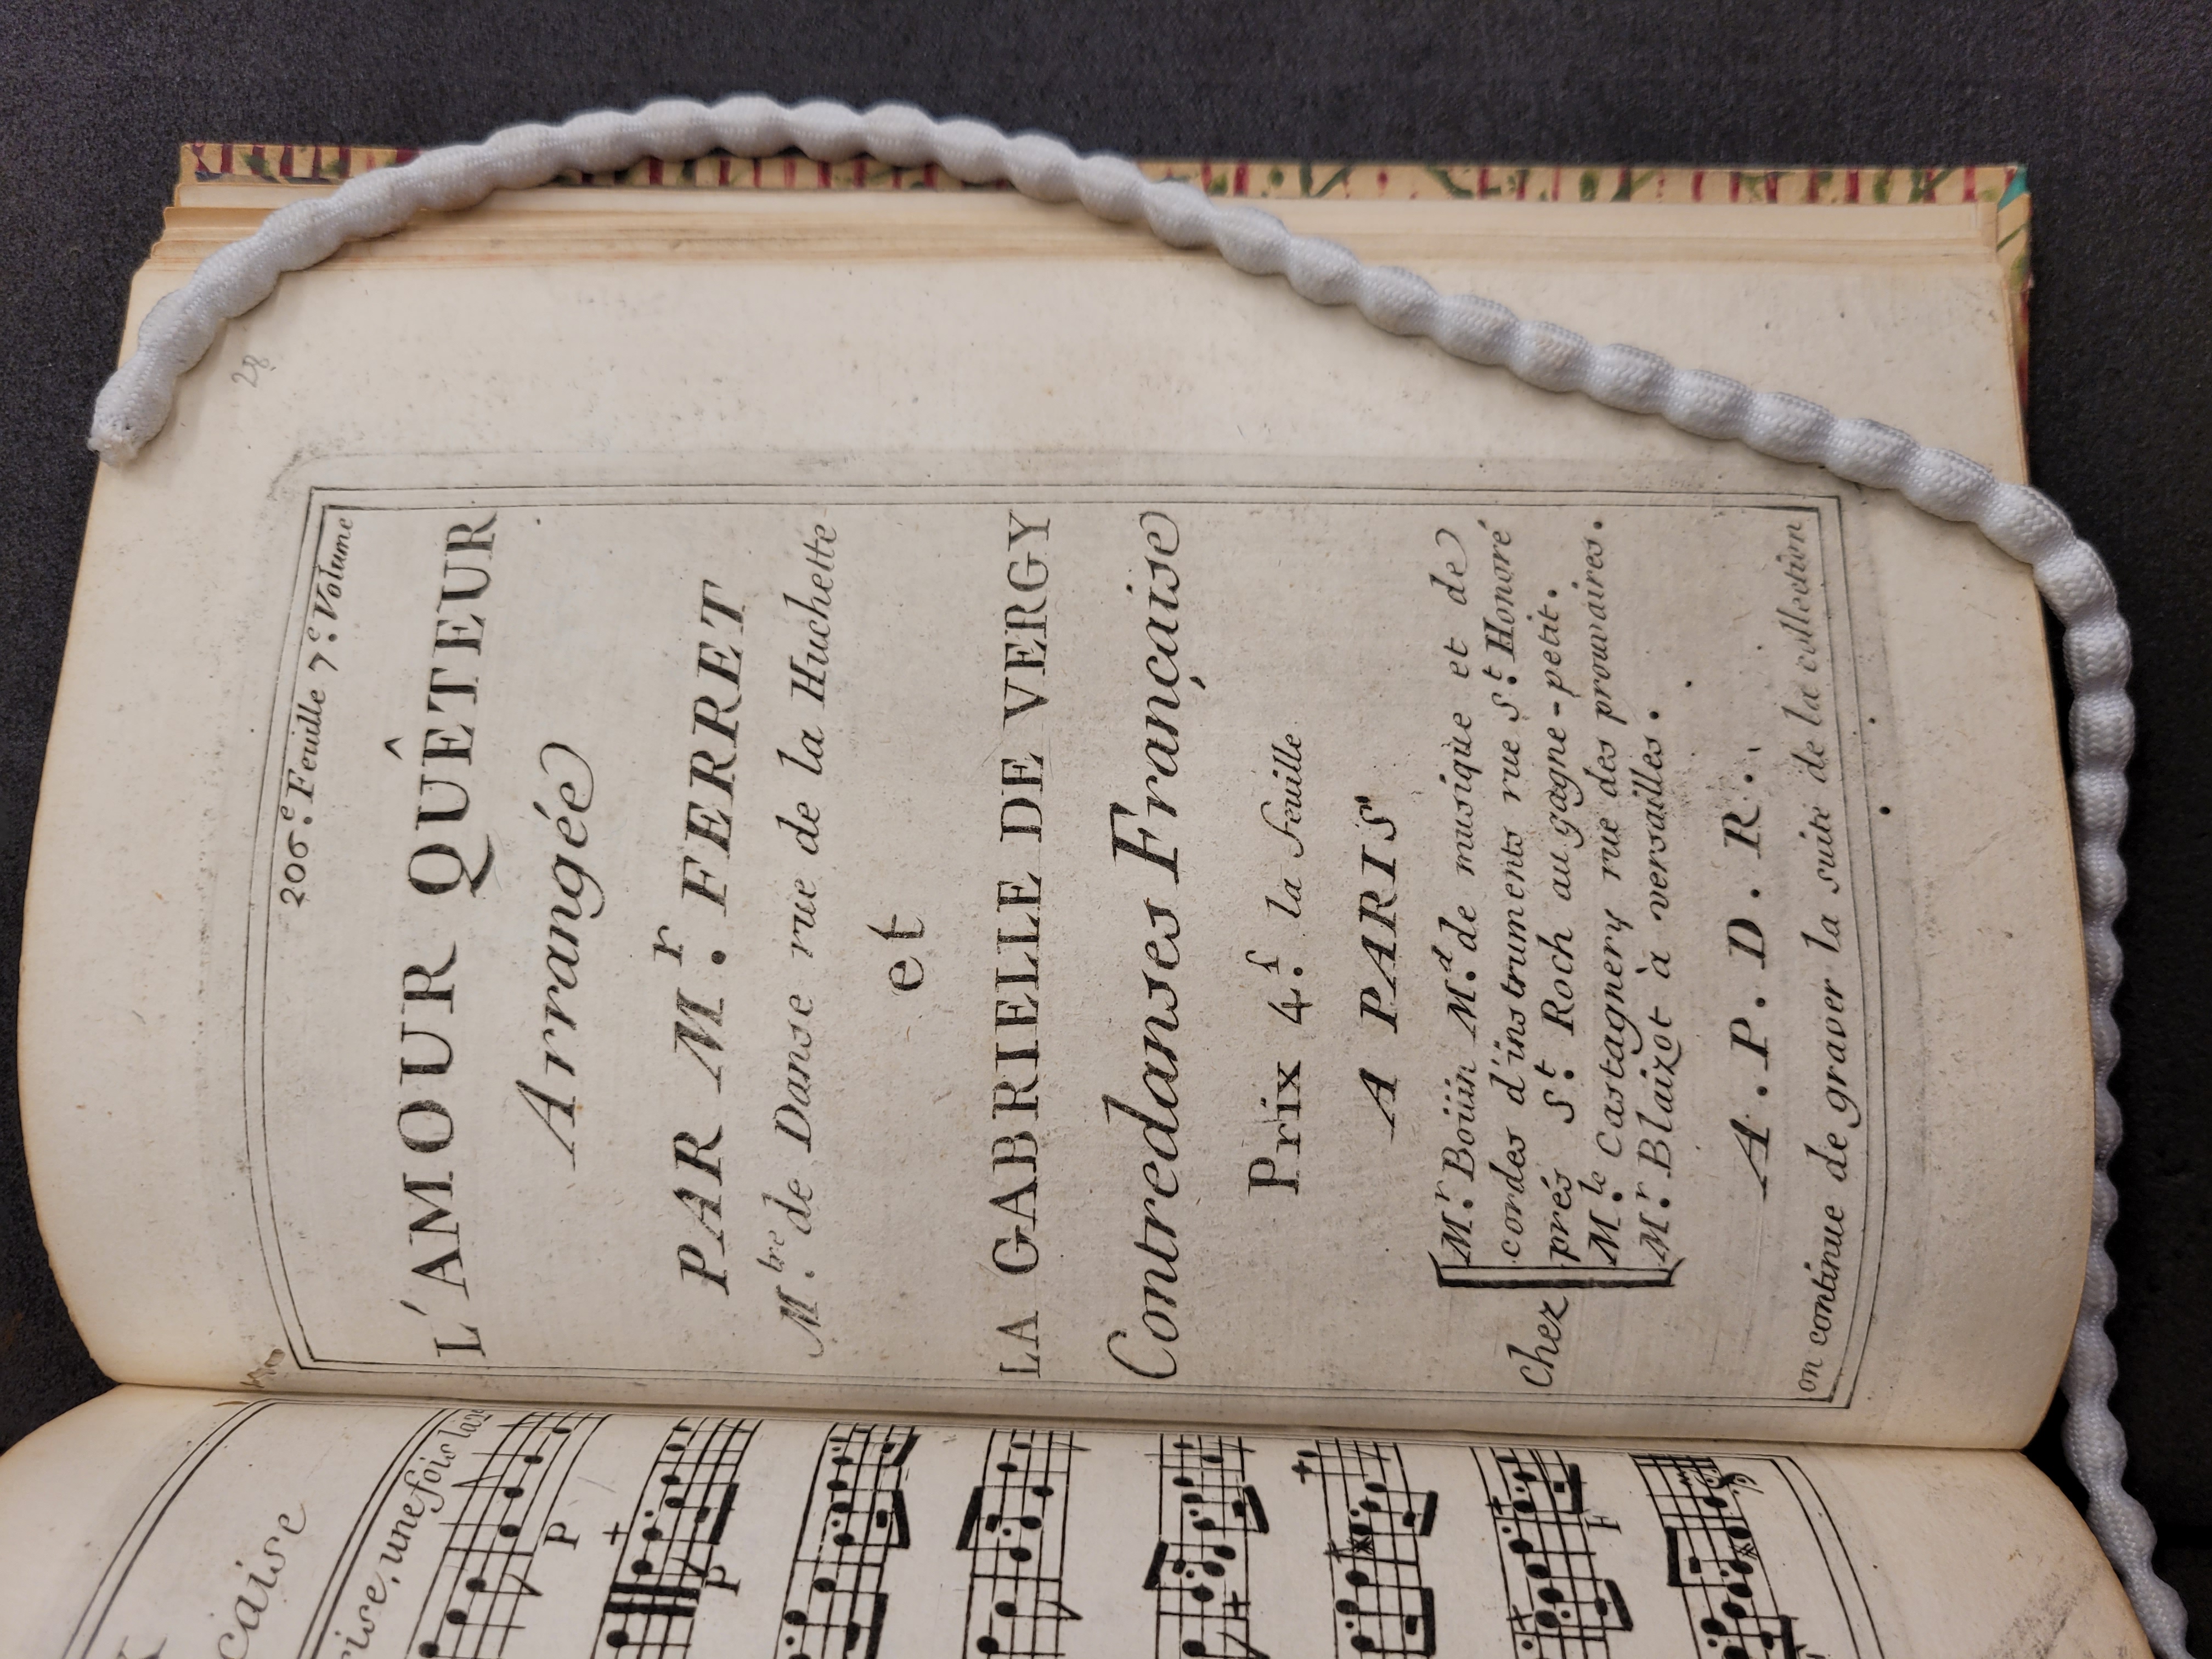 28
206.e Feuille 7.e Volume
L'AMOUR QUÊTEUR
Arrangée
PAR M.r FERRET
M.tre de Danse rue de la Huchette
et
LA GABRIELLE DE VERGY
Contredanses Française
Prix 4.s la feuille
A PARIS
Chez
M.r Boüin M.d de musique et de
cordes d'instruments rue S.t Honoré
prés S.t Roch au gagne-petit.
M.le Castagnery rue des prouvaires.
M.r Blaizot à versailles.
A.P.D.R.
on continue de graver la suite de la collection
caise
rise, une fois
P
P
F